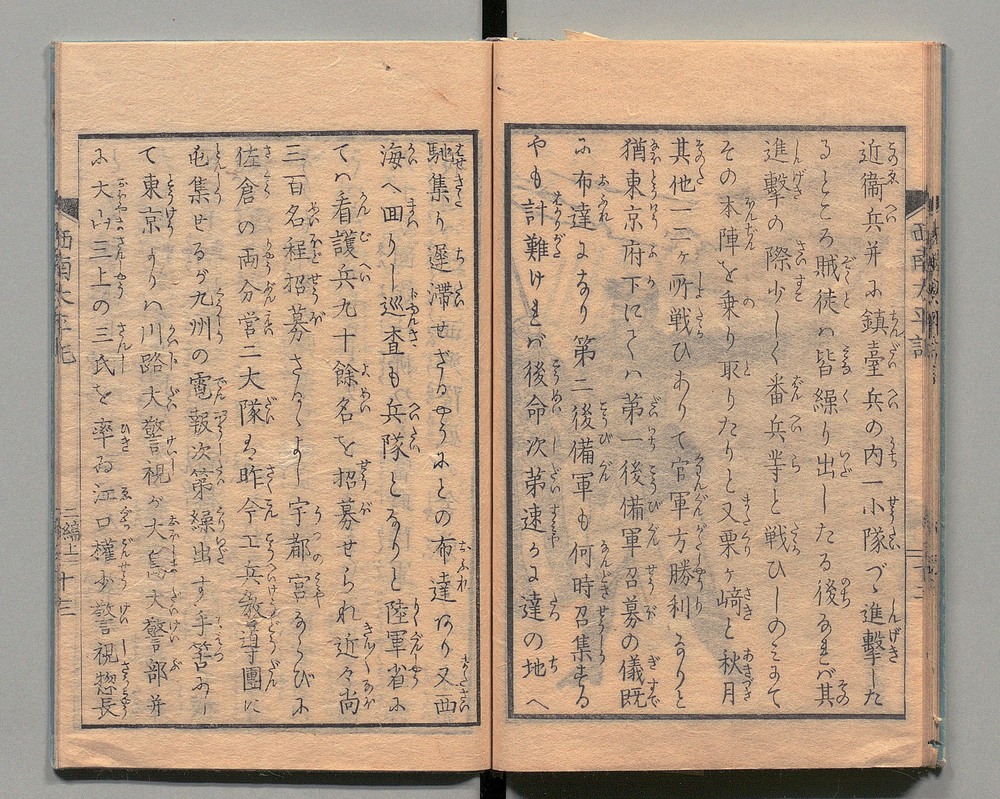 近衞兵并ニ鎮臺兵の内一小隊づゝ進撃した
るところ賊徒ハ皆繰り出したる後なれバ其
進撃の際少しく番兵等と戦ひしのミにて
その本陣を乗り取りたりと又栗ヶ﨑と秋月
其他一二ヶ所戦ひありて官軍方勝利なりと
猶東京府下にてハ第一後備軍召募の儀既
に布達になり第二後備軍も何時召集する
やも計難けれバ後命次第速かに達の地へ
馳集り遅滞せざるやうにとの布達あり又西
海へ回りし巡査も兵隊となりしと陸軍省に
てハ看護兵九十餘名を招募せられ近々尚
三百名程招募さるゝよし宇都宮ならびに
佐倉の両分営二大隊も昨今工兵教導團に
屯集せるが九州の電報次第繰出す手筈なり
て東京よりハ川路大警視が大 大警部并
に大山三上の三氏を率ゐ江口權少警視惣長
西南太平記
二編上
十三